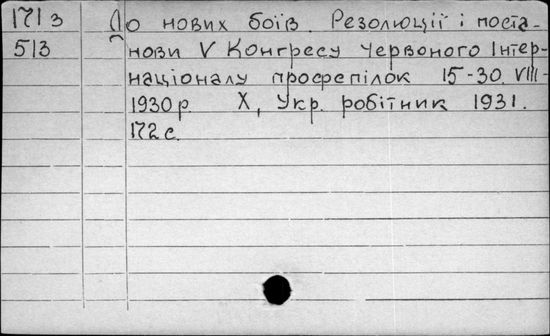 171з До нових боїв. Резолюції і поста-
513 нови V Конгресу Червоного Інтер-
націоналу профспілок 15-30.VIII-
1930 р. Х, Укр. робітник 1931.
172 с.